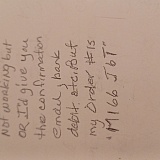 Not working but
or I'd give you
the confirmation
email, bank
debit, etc. But
my order # is
"M166 JbT"